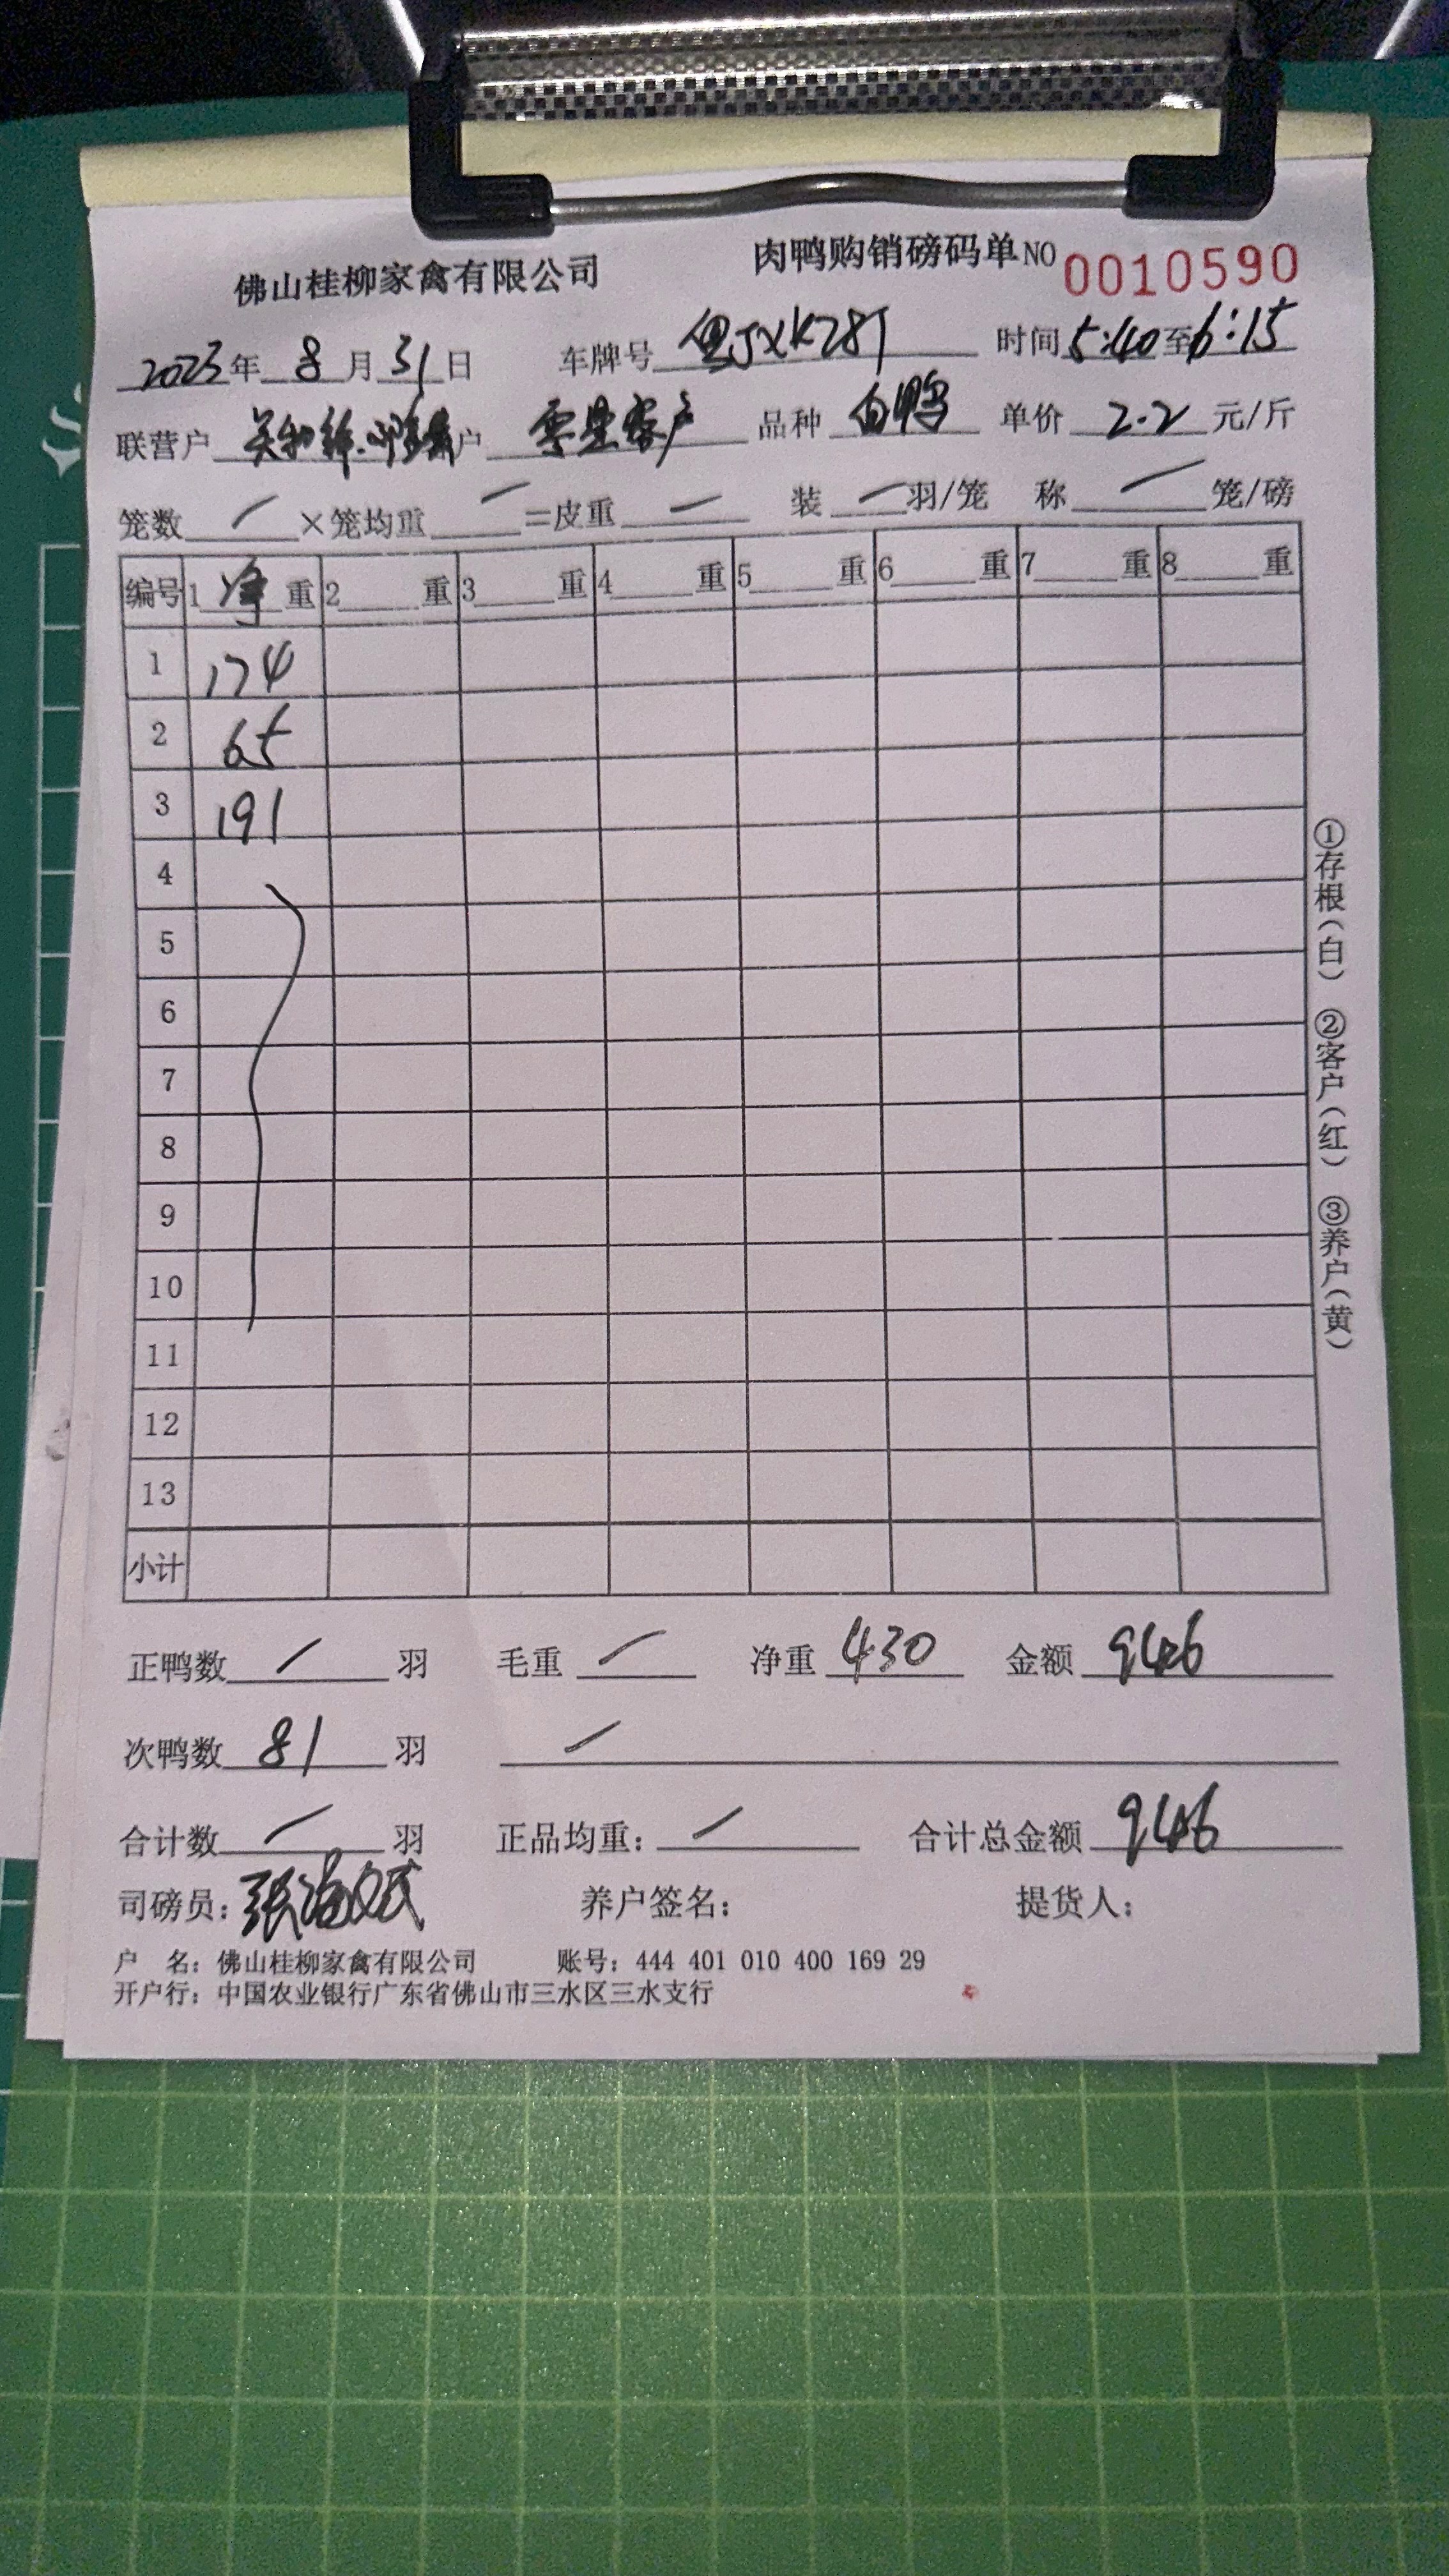 佛山桂柳家禽有限公司 肉鸭购销磅码单 NO 0010590
2023年 8月 31日 车牌号 JXK28T 时间 5:40 至 6:15
联营户 户 零星客户 品种 白鸭 单价 2.2 元/斤
笼数 / ×笼均重 / =皮重 / 装 / 羽/笼 称 / 笼/磅
编号 1 净 重 2 重 3 重 4 重 5 重 6 重 7 重 8 重
1 174
2 65
3 191
4
5
6
7
8
9
10
11
12
13
小计
①存根(白) ②客户(红) ③养户(黄)
正鸭数 / 羽 毛重 / 净重 430 金额 946
次鸭数 81 羽 /
合计数 / 羽 正品均重: / 合计总金额 946
司磅员: 张海 养户签名: 提货人:
户 名: 佛山桂柳家禽有限公司 账号: 444 401 010 400 169 29
开户行: 中国农业银行广东省佛山市三水区三水支行